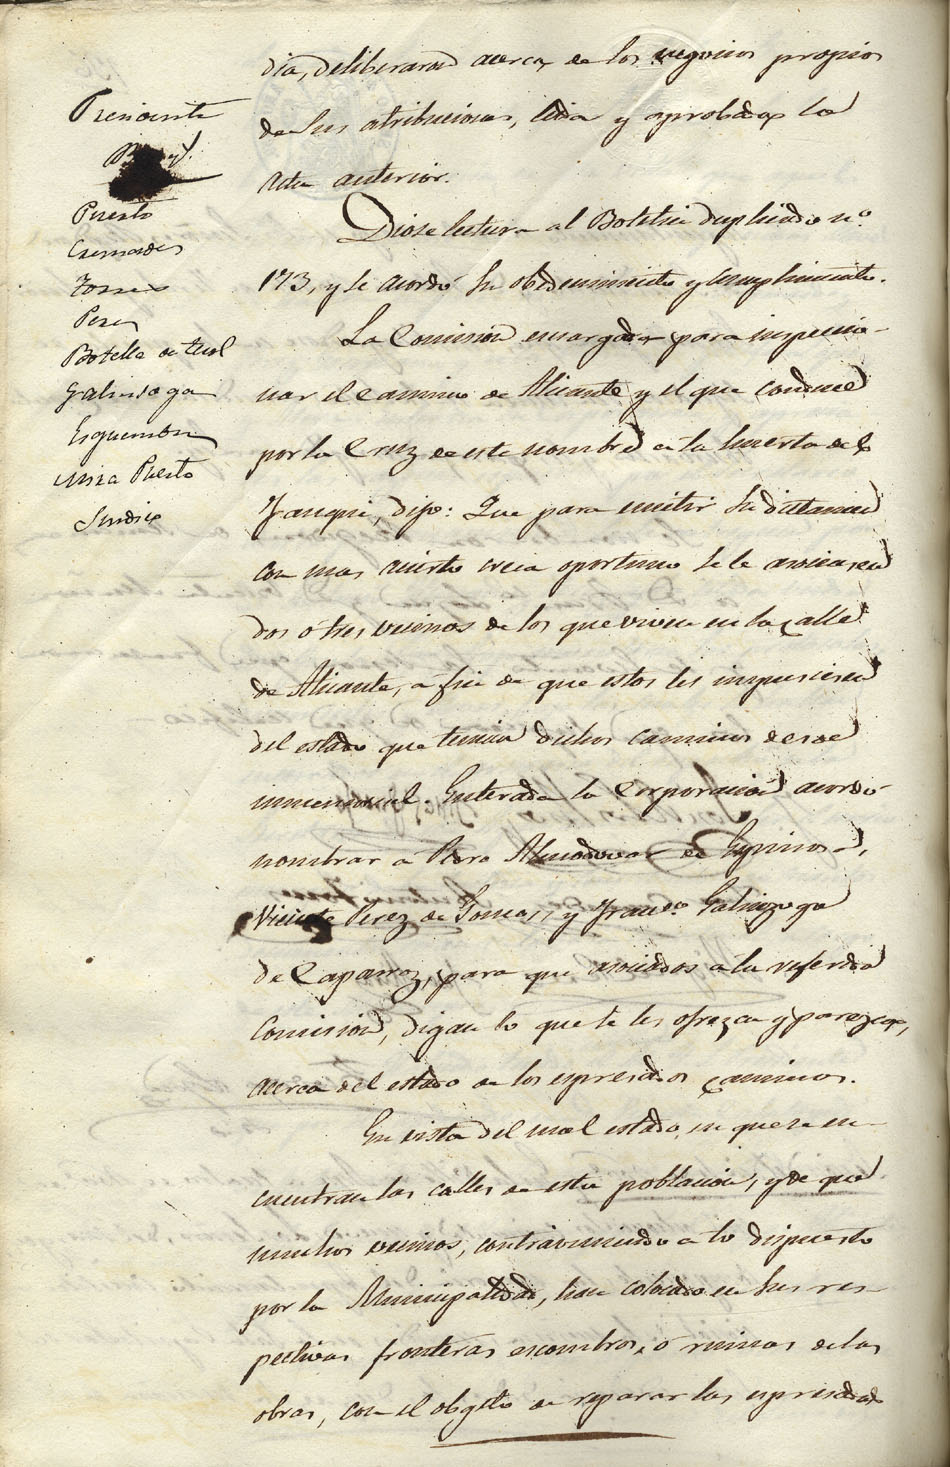 Presidente
Puesto
Torres
Perez
Botella de Juál
Galinsoga
Esquembre
Mira Puesto
Sindico
dia, deliberaron acerca de los negocios propios
de sus atribuciones, leida y aprobada la
acta anterior.
Diose lectura al Boletin duplicado nº
173, y se acordó su obedecimiento y cumplimiento.
La Comision encargada para inspeccio-
nar el camino de Alicante y el que conduce
por la Cruz de este nombre a la huerta del
Fanqui, dijo: Que para emitir su dictamen
con mas acierto creia oportuno se le asociasen
dos ó tres vecinos de los que viven en la calle
de Alicante, a fin de que estos les impusiesen
del estado que tenian dichos caminos desde
inmemorial. Enterada la Corporacion acordó
nombrar á Pedro Almodovar de Espinosa,
Vicente Perez de Tomas, y Franco. Galinzoga
de Caparroz, para que asociados a la referida
Comision, digan lo que se les ofrezca y parezca,
acerca del estado de los espresados caminos.
En vista del mal estado en que se en-
cuentran las calles de esta poblacion, y de que
muchos vecinos, contraviniendo a lo dispuesto
por la Municipalidad, han colocado en sus res-
pectivas fronteras escombros, ó ruinas de las
obras, con el objeto de reparar las espresadas